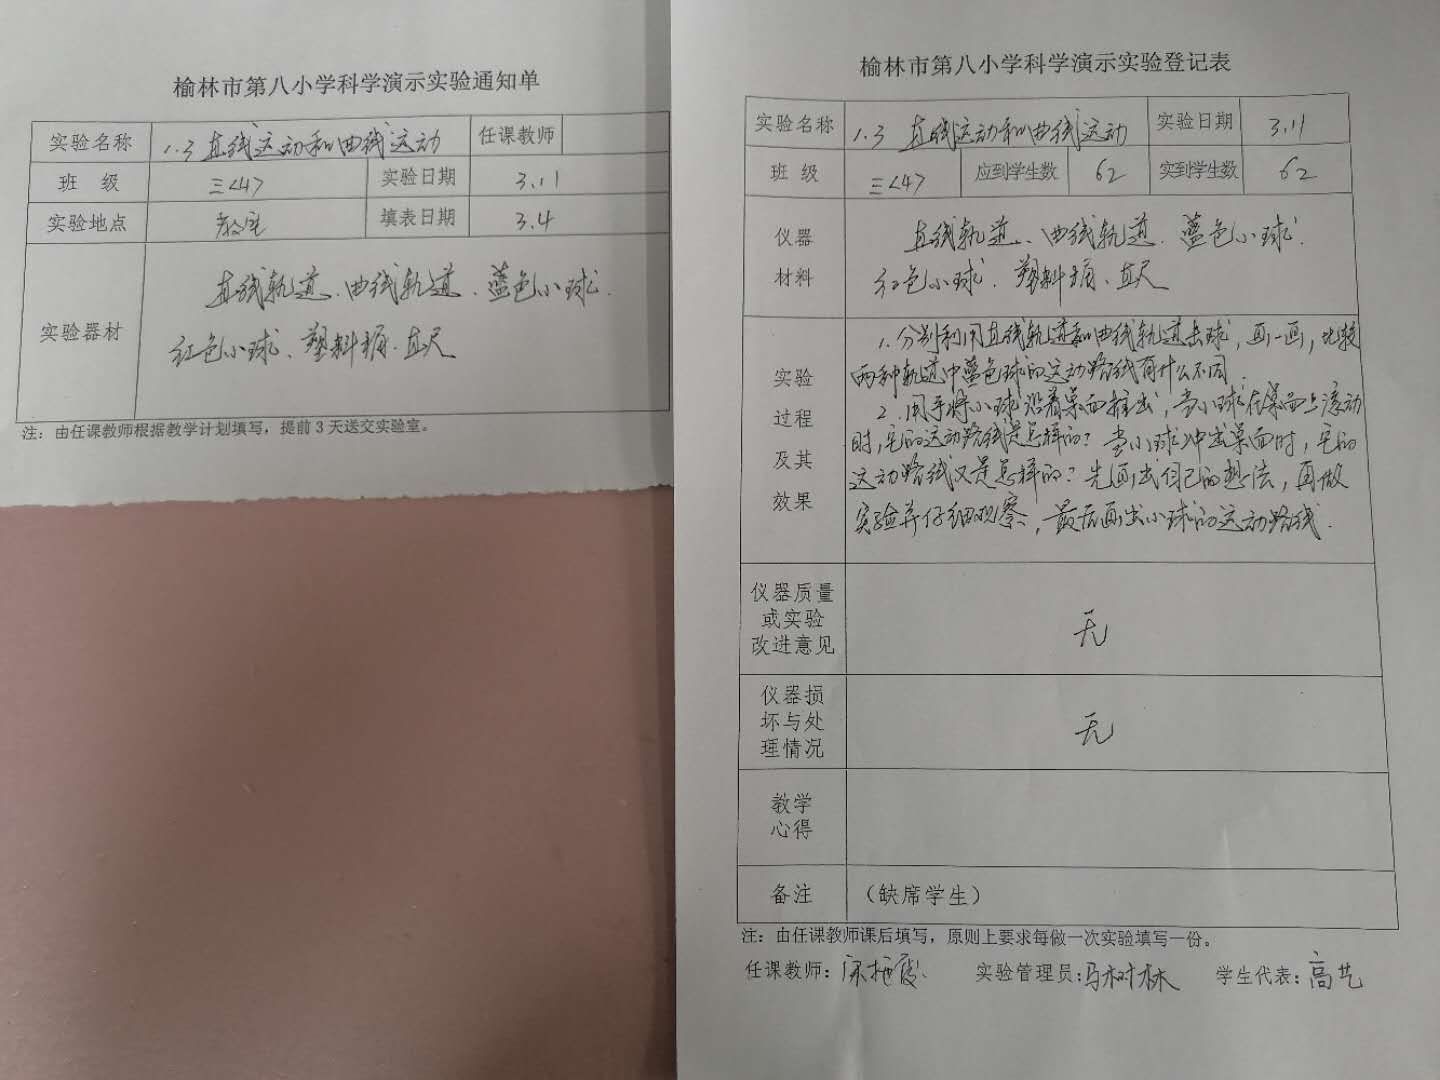 榆林市第八小学科学演示实验通知单
实验名称 1.3 直线运动和曲线运动 任课教师
班 级 三<4> 实验日期 3.11
实验地点 教室 填表日期 3.4
实验器材
直线轨道、曲线轨道、蓝色小球.
红色小球、塑料瓶、直尺
注：由任课教师根据教学计划填写，提前3天送交实验室。
榆林市第八小学科学演示实验登记表
实验名称 1.3 直线运动和曲线运动 实验日期 3.11
班 级 三<4> 应到学生数 62 实到学生数 62
仪器
材料
直线轨道、曲线轨道、蓝色小球.
红色小球、塑料瓶、直尺
实验
过程
及其
效果
1. 分别利用直线轨道和曲线轨道击球，画一画，比较
两种轨道中蓝色球的运动路线有什么不同.
2. 用手将小球沿着桌面推出，当小球在桌面上滚动
时，它的运动路线是怎样的？当小球冲出桌面时，它的
运动路线又是怎样的？先画出自己的想法，再做
实验并仔细观察，最后画出小球的运动路线.
仪器质量
或实验
改进意见
无
仪器损
坏与处
理情况
无
教学
心得
备注 （缺席学生）
注：由任课教师课后填写，原则上要求每做一次实验填写一份。
任课教师： 实验管理员：马树林 学生代表：高艺